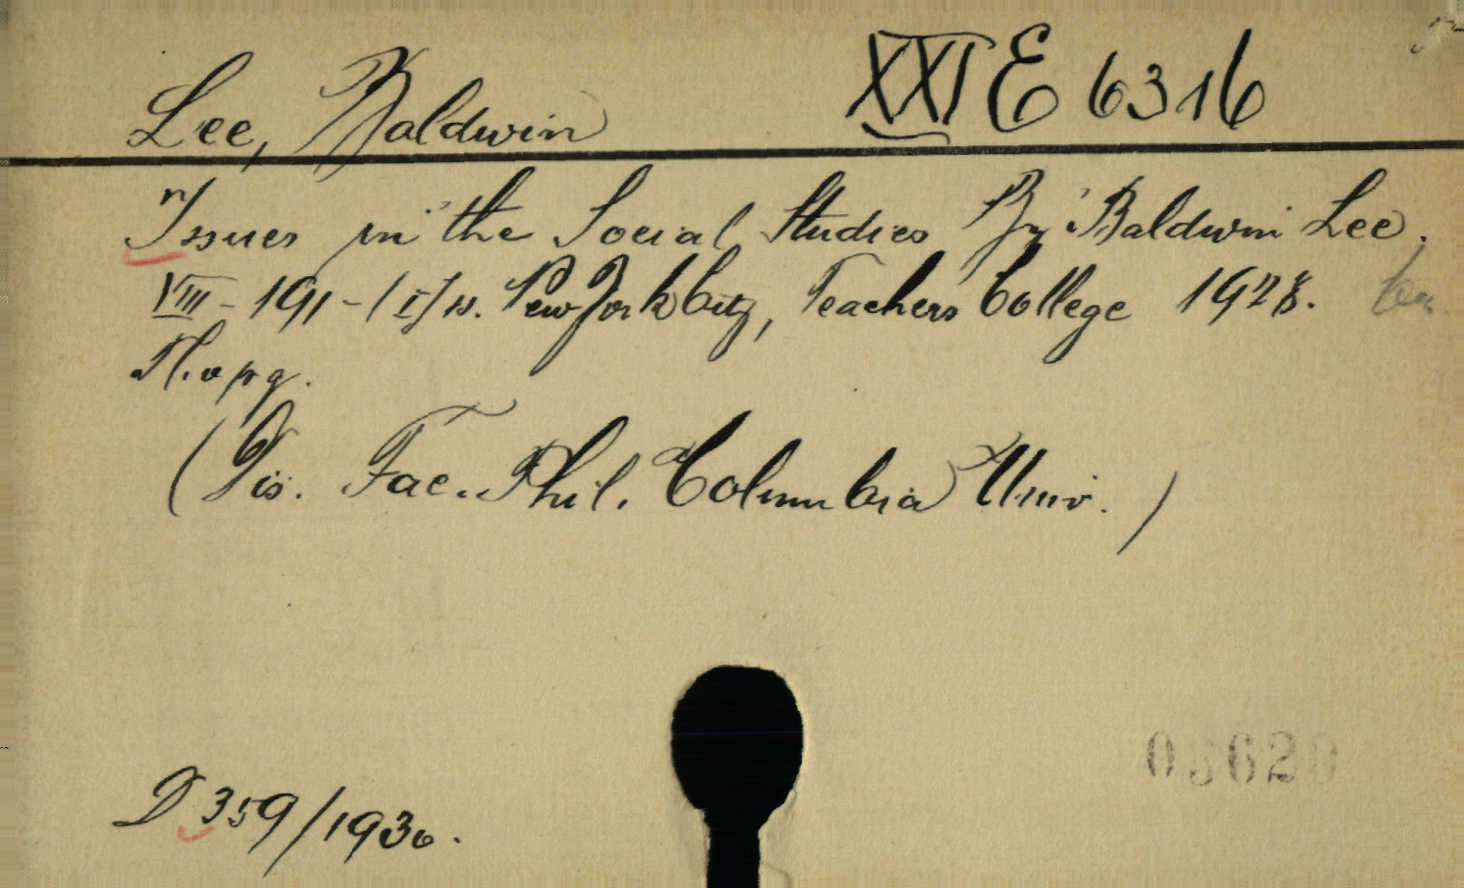 Lee, Baldwin XXI E 6316
Issues in the Social Studies By Baldwin Lee.
VIII - 191 - [I] s. New York City, Teachers College 1928.
(Dis. Fac. Phil. Columbia Univ.)
D 359/1930.